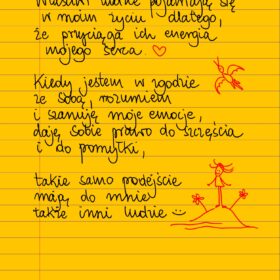 ludzie pojawiają się
w moim życiu dlatego,
że przyciąga ich energia
mojego serca.
Kiedy jestem w zgodzie
ze sobą, rozumiem
i szanuję moje emocje,
daję sobie prawo do szczęścia
i do pomyłki,
takie samo podejście
mają do mnie
także inni ludzie